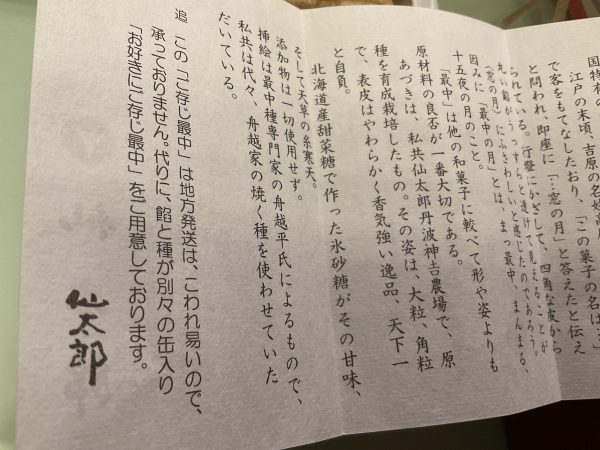 国特有の
江戸の末頃、吉原の名妓高尾
で客をもてなしたおり、「この菓子の名は…」
と問われ、即座に「…窓の月」と答えたと伝え
られている。行燈にかざして、四角な皮から
丸い餡がうっすらと透けて見えることが
〈窓の月〉にふさわしいと感じたのであろう。
因みに「最中の月」とは、まっ最中、まんまる、
十五夜の月のこと。
「最中」は他の和菓子に較べて形や姿よりも
原材料の良否が一番大切である。
あづきは、私共仙太郎丹波神吉農場で、原
種を育成栽培したもの。その姿は、大粒、角粒
で、表皮はやわらかく香気強い逸品、天下一
と自負。
北海道産甜菜糖で作った氷砂糖がその甘味、
そして天草の糸寒天。
添加物は一切使用せず。
挿絵は最中種専門家の舟越平氏によるもので、
私共は代々、舟越家の焼く種を使わせていた
だいている。
追 この「ご存じ最中」は地方発送は、こわれ易いので、
承っておりません。代りに、餡と種が別々の缶入り
「お好きにご存じ最中」をご用意しております。
仙太郎